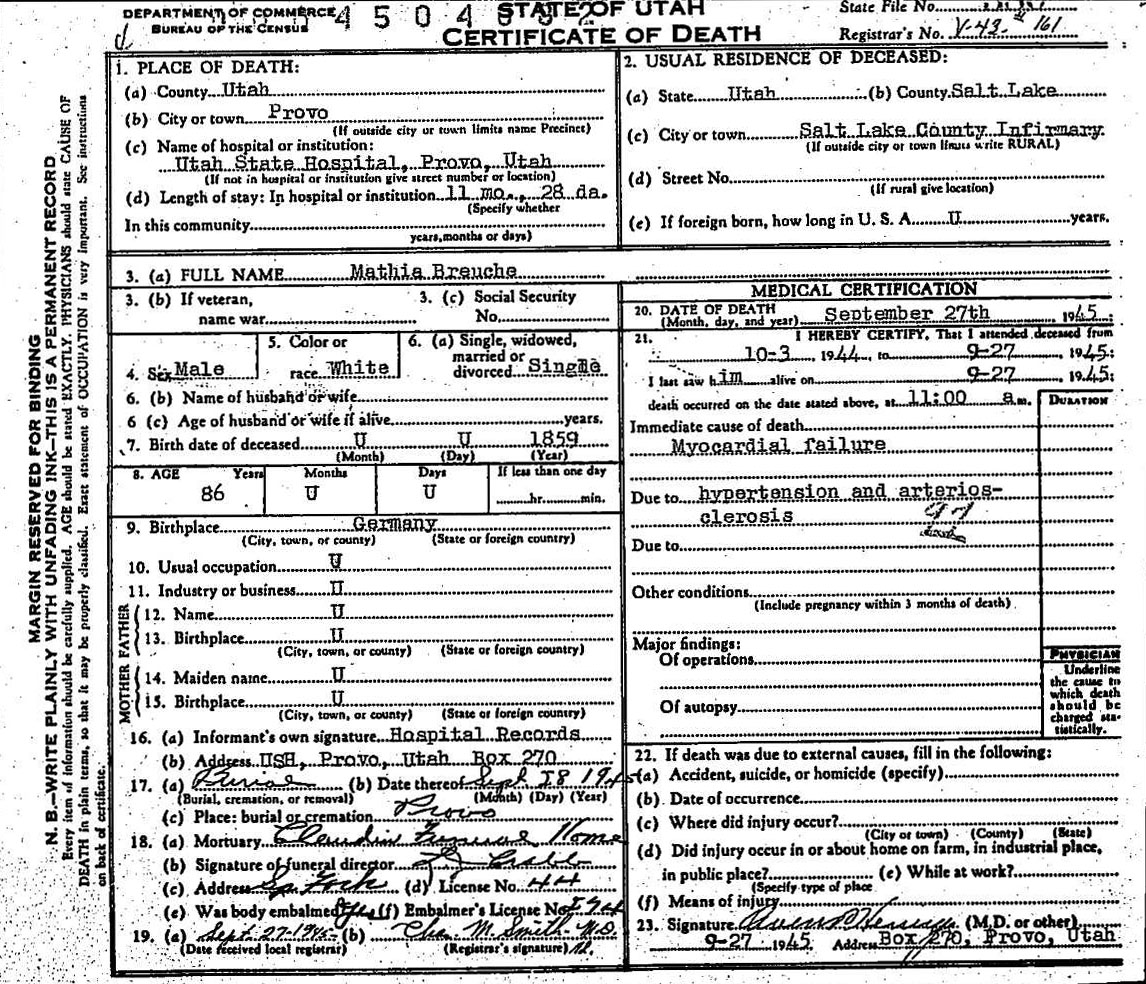 DEPARTMENT OF COMMERCE
BUREAU OF THE CENSUS
STATE OF UTAH
CERTIFICATE OF DEATH
State File No.
Registrar's No. V-43- 161
MARGIN RESERVED FOR BINDING
N. B.—WRITE PLAINLY WITH UNFADING INK—THIS IS A PERMANENT RECORD
Every item of information should be carefully supplied. AGE should be stated EXACTLY. PHYSICIANS should state CAUSE OF
DEATH in plain terms, so that it may be properly classified. Exact statement of OCCUPATION is very important. See instructions
on back of certificate.
1. PLACE OF DEATH:
(a) County Utah
(b) City or town Provo
(If outside city or town limits name Precinct)
(c) Name of hospital or institution:
Utah State Hospital, Provo, Utah
(If not in hospital or institution give street number or location)
(d) Length of stay: In hospital or institution 11 mo., 28 da.
(Specify whether
In this community
years, months or days)
2. USUAL RESIDENCE OF DECEASED:
(a) State Utah (b) County Salt Lake
(c) City or town Salt Lake County Infirmary
(If outside city or town limits write RURAL)
(d) Street No.
(If rural give location)
(e) If foreign born, how long in U. S. A. U years.
3. (a) FULL NAME Mathia Breuche
3. (b) If veteran,
name war
3. (c) Social Security
No.
4. Sex Male
5. Color or
race White
6. (a) Single, widowed,
married or
divorced Single
6. (b) Name of husband or wife
6 (c) Age of husband or wife if alive years.
7. Birth date of deceased U U 1859
(Month) (Day) (Year)
8. AGE Years Months Days If less than one day
86 U U hr. min.
9. Birthplace Germany
(City, town, or county) (State or foreign country)
10. Usual occupation U
11. Industry or business U
FATHER
12. Name U
13. Birthplace U
(City, town, or county) (State or foreign country)
MOTHER
14. Maiden name U
15. Birthplace U
(City, town, or county) (State or foreign country)
16. (a) Informant's own signature Hospital Records
(b) Address USH, Provo, Utah Box 270
17. (a) Burial (b) Date thereof Sept 28 1945
(Burial, cremation, or removal) (Month) (Day) (Year)
(c) Place: burial or cremation Provo
18. (a) Mortuary Claudin Funeral Home
(b) Signature of funeral director
(c) Address Sp Fork (d) License No. 44
(e) Was body embalmed Yes (f) Embalmer's License No.
19. (a) Sept. 27-1945 (b) Chas. M. Smith M.D.
(Date received local registrar) (Registrar's signature)
MEDICAL CERTIFICATION
20. DATE OF DEATH
(Month, day, and year) September 27th 1945
21. I HEREBY CERTIFY, That I attended deceased from
10-3 1944 to 9-27 1945
I last saw him alive on 9-27 1945
death occurred on the date stated above, at 11:00 a m.
DURATION
Immediate cause of death
Myocardial failure
Due to hypertension and arterios-
clerosis
97
Due to
Other conditions
(Include pregnancy within 3 months of death)
Major findings:
Of operations
Of autopsy
PHYSICIAN
Underline
the cause to
which death
should be
charged sta-
tistically.
22. If death was due to external causes, fill in the following:
(a) Accident, suicide, or homicide (specify)
(b) Date of occurrence
(c) Where did injury occur?
(City or town) (County) (State)
(d) Did injury occur in or about home on farm, in industrial place,
in public place? (e) While at work?
(Specify type of place
(f) Means of injury
23. Signature (M.D. or other)
9-27 1945 Address Box 270, Provo, Utah